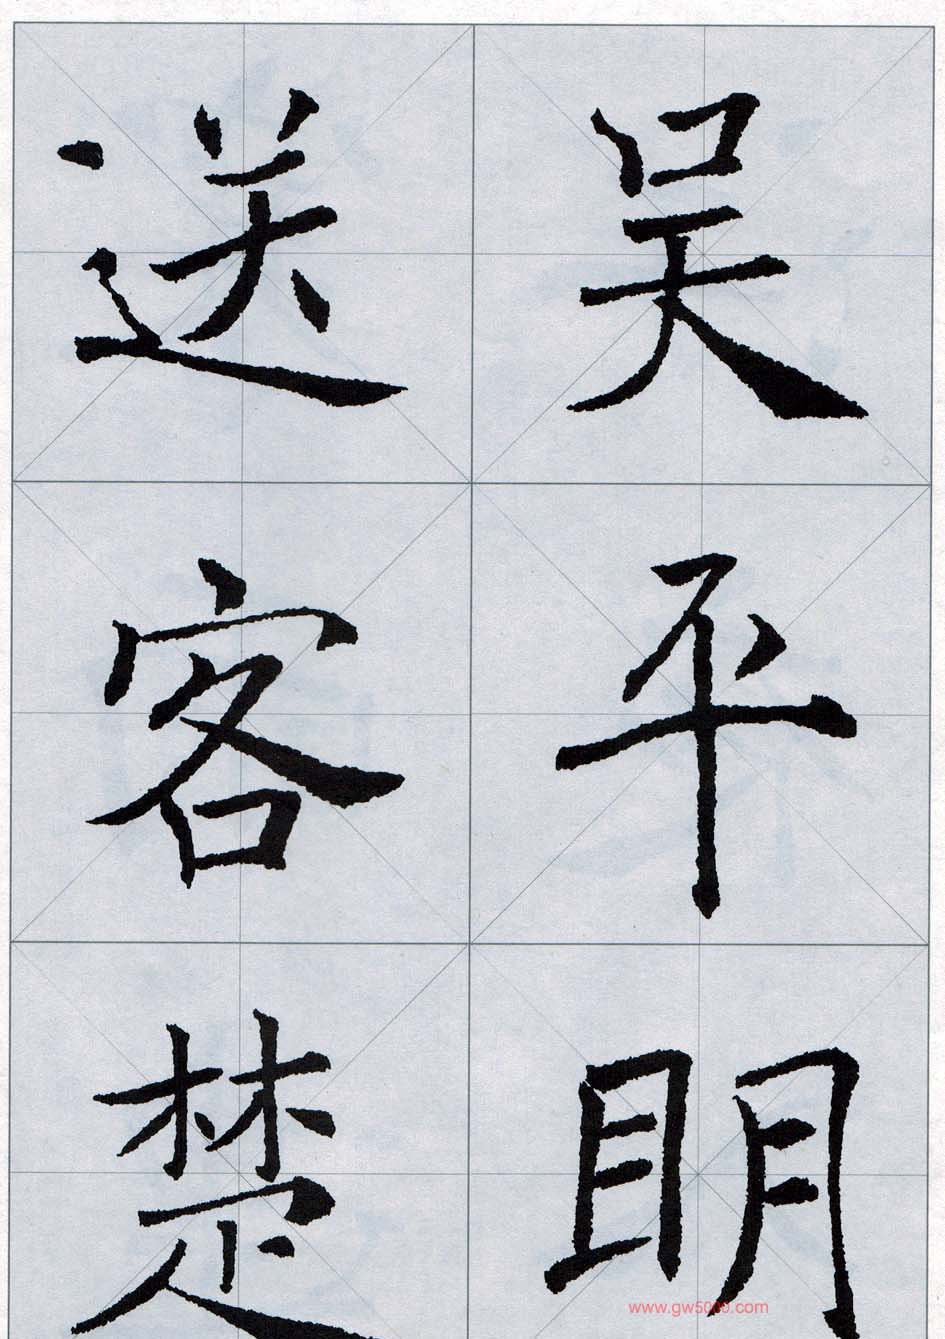 吴平明
送客楚
www.gw5000.com